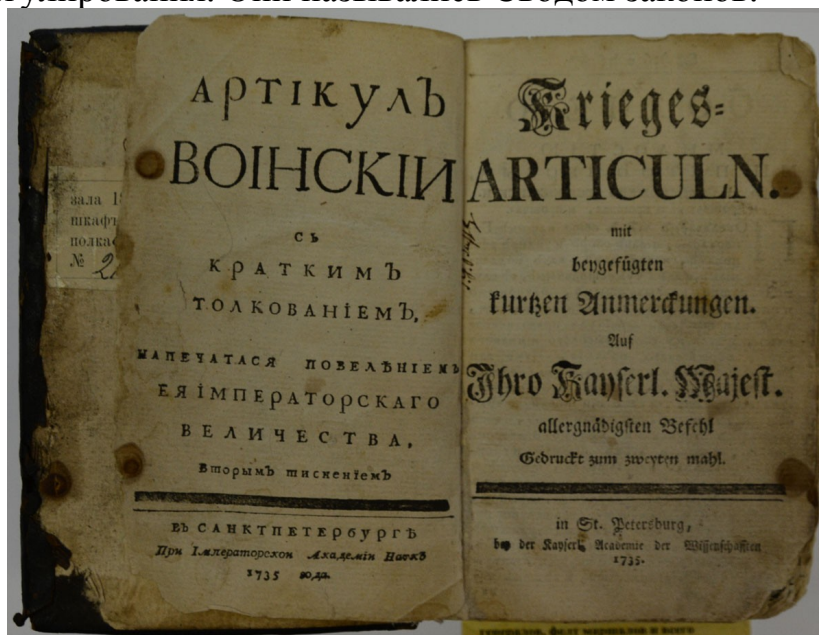 гулирования. Они назывались Сводом законов.
зала 1
шкафъ
полка
№ 2
АРТІКУЛЪ
ВОІНСКІИ
СЪ
КРАТКИМЪ
ТОЛКОВАНІЕМЪ,
НАПЕЧАТАСЯ ПОВЕЛѢНІЕМЪ
ЕЯ ІМПЕРАТОРСКАГО
ВЕЛИЧЕСТВА,
Вторымъ тисненіемъ
ВЪ САНКТПЕТЕРБУРГѢ
При Імператорскои Академіи Наукъ
1735 года.
Krieges-
ARTICULN.
mit
beygefügten
kurtzen Anmerckungen.
Auf
Ihro Kayserl. Majest.
allergnädigsten Befehl
Gedruckt zum zweyten mahl.
in St. Petersburg,
bey der Kayserl. Academie der Wissenschafften
1735.